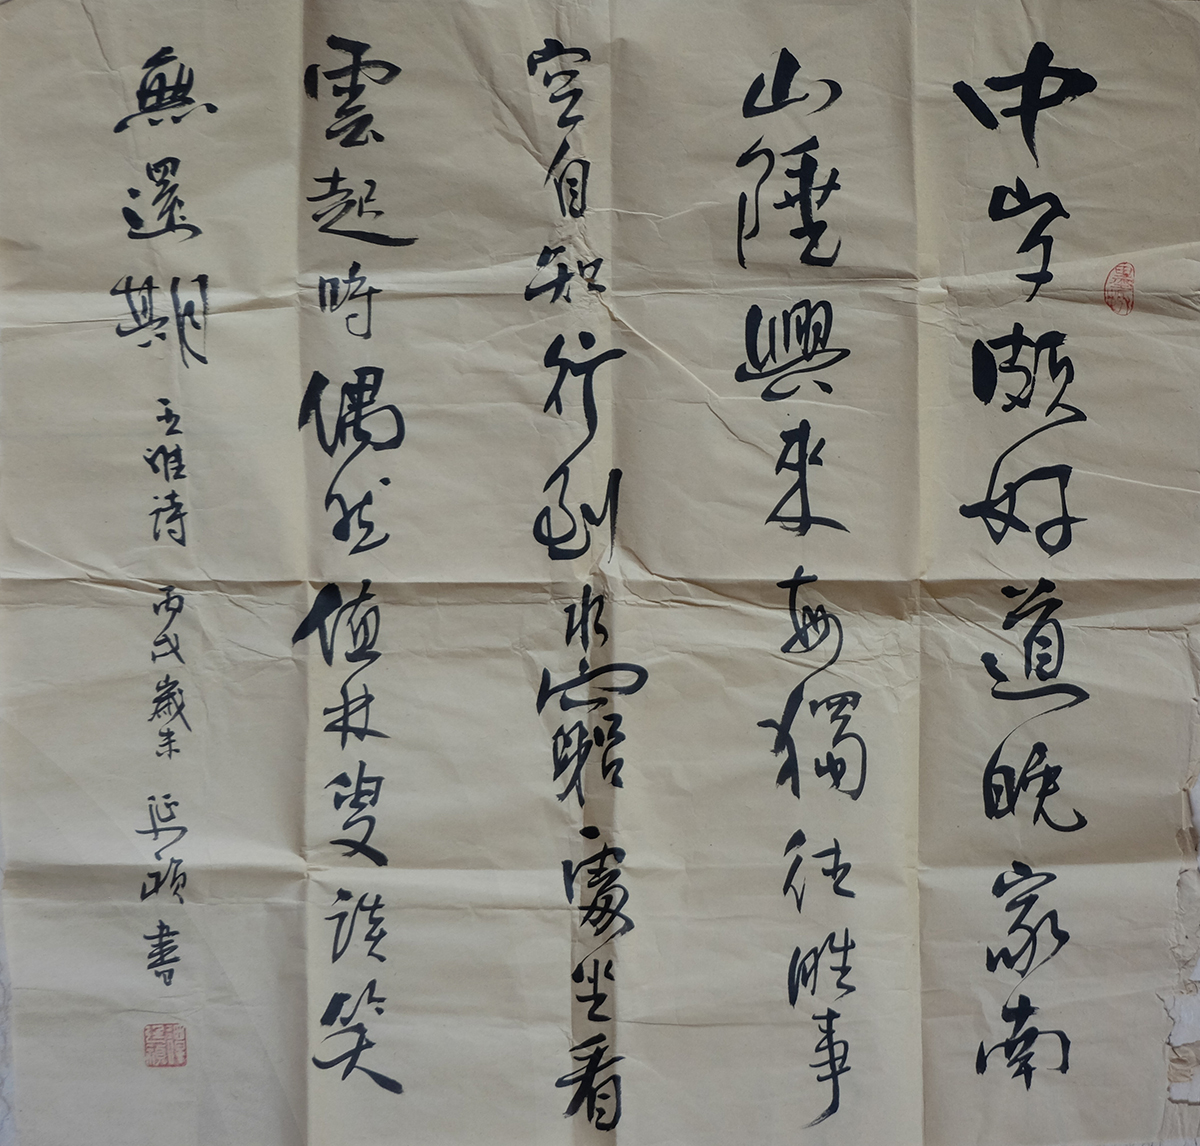 中岁頗好道晚家南
山陲興來每獨往勝事
空自知行到水窮處坐看
雲起時偶然值林叟談笑
無還期
王維詩 丙戌歲末 延頌書